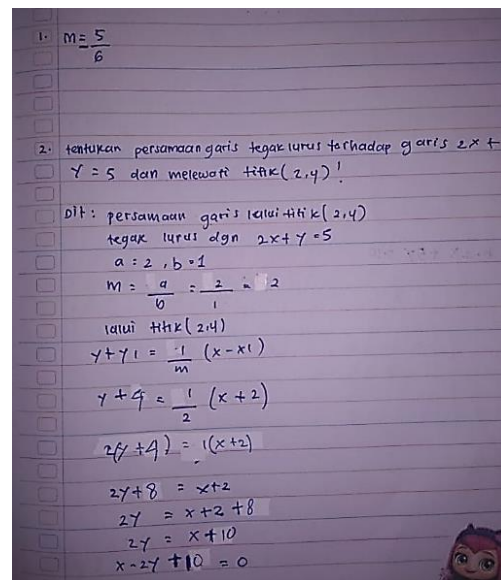 1. m = 5/6
2. tentukan persamaan garis tegak lurus terhadap garis 2x +
y = 5 dan melewati titik (2,4)!
Dit : persamaan garis lalui titik (2,4)
tegak lurus dgn 2x + y = 5
a = 2 , b = 1
m = a/b = 2/1 = 2
lalui titik (2,4)
y + y1 = 1/m (x - x1)
y + 4 = 1/2 (x + 2)
2(y + 4) = 1(x + 2)
2y + 8 = x + 2
2y = x + 2 + 8
2y = x + 10
x - 2y + 10 = 0